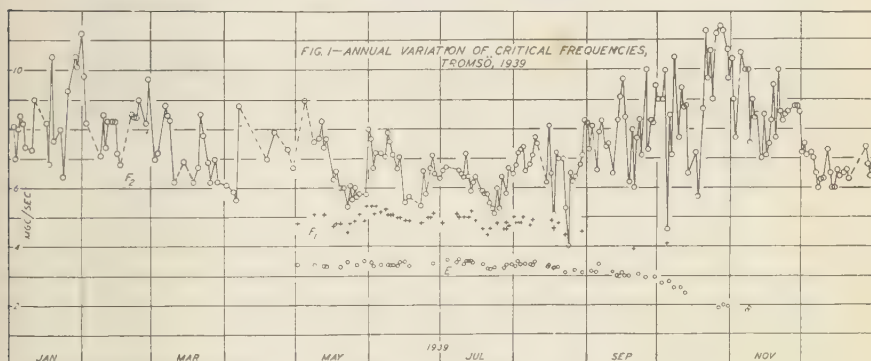 FIG. 1—ANNUAL VARIATION OF CRITICAL FREQUENCIES,
TROMSÖ, 1939
10
8
F2
6
MGC/SEC
F1
4
E
2
1939
JAN MAR MAY JUL SEP NOV